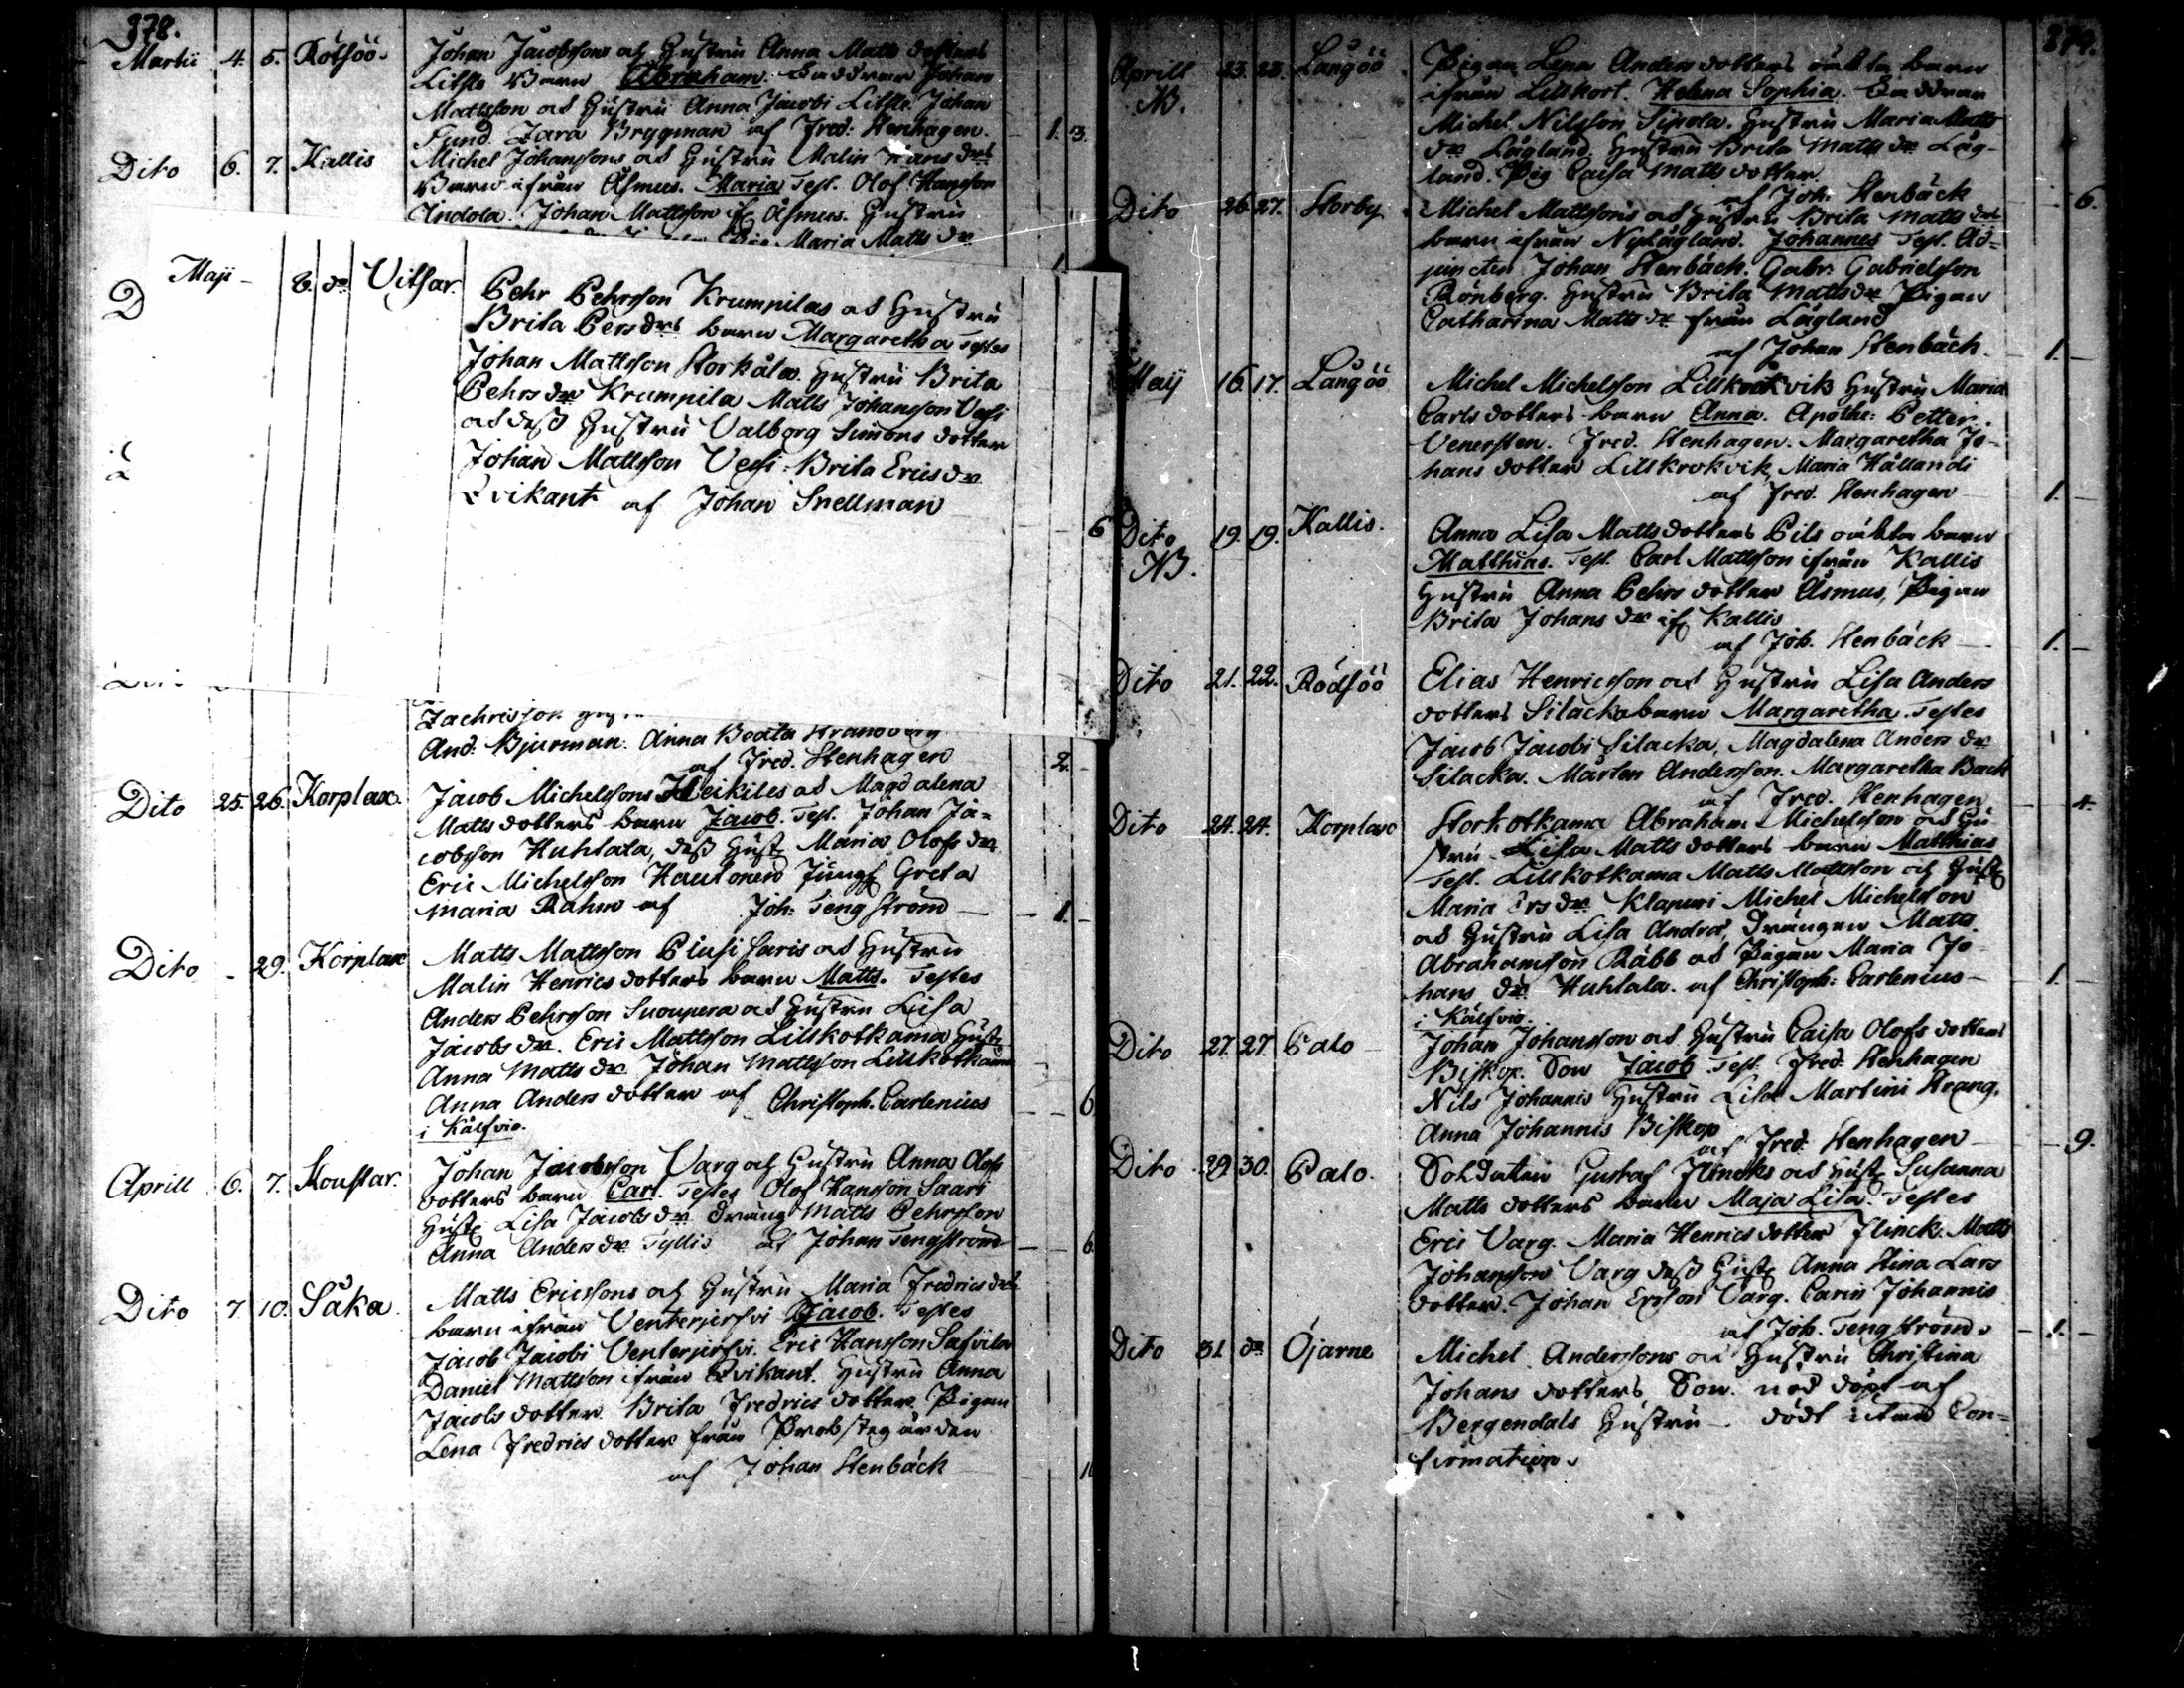 378.
Martii 4. 5. Rötsöö. Johan Jacobssons och Hustru Anna Matts dotters
Litsle Barn Abraham. Faddrar Johan
Mattsson och Hustru Anna Jacobi Litsle. Johan
Sund. Zara Brygman af Fred: Stenhagen. 1. 3.
Dito 6. 7. Kallis Michel Johanssons och Hustru Malin Hans drs
Barn ifrån Åsmus. Maria Test. Olof Hansson
Andola. Johan Mattsson if Åsmus. Hustru
Maria Matts dr
Maji 8. do Vitsar. Pehr Pehrsson Krumpilas och Hustru
Brita Pers drs barn Margaretha Testes
Johan Mattsson Storkåla. Hustru Brita
Pehrs dr Krumpila Matts Johansson Vessi
och dess Hustru Valborg Simons dotter
Johan Mattsson Vessi. Brita Erics dr
Qvikant af Johan Snellman 6
Zachrisson
And. Bjurman. Anna Beata Strandberg
af Fred. Stenhagen 2.
Dito 25. 26. Korplax. Jacob Michelssons Heikiles och Magdalena
Matts dotters barn Jacob. Test. Johan Ja=
cobsson Huhtala, dess Hust Maria Olofs dr
Eric Michelsson Hautonen Jungf Greta
Maria Rahm af Joh: Tengström 1.
Dito 29. Korplax Matts Mattsson Piusi Saris och Hustru
Malin Henrics dotters barn Matts. Testes
Anders Pehrsson Suoupera och Hustru Lisa
Jacobs dr. Eric Mattsson Lillkotkama Hust
Anna Matts dr Johan Mattsson Lillkotkama
Anna Anders dotter af Christoph. Carlenius 6
i Kälfvia.
Aprill 6. 7. Koustar. Johan Jacobsson Varg och Hustru Anna Olofs
dotters barn Carl. Testes Olof Hansson Saari
Hust Lisa Jacobs dr Dräng Matts Pehrsson
Anna Anders dr Tyllis af Johan Tengström 6
Dito 7 10. Såka. Matts Ericssons och Hustru Maria Fredrics drs
barn ifrån Venterjerfvi Jacob. Testes
Jacob Jacobi Venterjerfvi. Eric Hansson Safvila
Daniel Mattsson ifrån Qvikant. Hustru Anna
Jacobs dotter. Brita Fredrics dotter. Pigan
Lena Fredrics dotter från Probstegården
af Johan Stenbäck
379.
Aprill 23. 23. Långöö Pigan Lena Anders dotters oäkta barn
NB. ifrån Lillkort. Helena Sophia. Faddrar
Michel Nilsson Sipola. Hustru Maria Matts
dr Lågland. Hustru Brita Matts dr Låg-
land. Pig Caisa Matts dotter
af Joh. Stenbäck 6.
Dito 26. 27. Storby Michel Mattssons och Hustru Brita Matts drs
barn ifrån Nylågland. Johannes Test. Ad=
juncten Johan Stenbäck. Gabr: Gabrielsson
Rönberg. Hustru Brita Matts dr Pigan
Catharina Matts dr från Lågland
af Johan Stenbäck. 1.
Maij 16. 17. Långöö Michel Michelsson Lillkrokvik Hustru Maria
Carls dotters barn Anna. Apothe: Petter
Venersten. Fred. Stenhagen. Margaretha Jo-
hans dotter Lillkrokvik, Maria Hällandi
af Fred. Stenhagen 1.
Dito 19. 19. Kallis. Anna Lisa Matts dotters Pils oäkta barn
NB. Matthias. Test. Carl Mattsson ifrån Kallis
Hustru Anna Pehrs dotter Åsmus, Pigan
Brita Johans dr if Kallis
af Joh. Stenbäck 1.
Dito 21. 22. Rödsöö Elias Henricsson och Hustru Lisa Anders
dotters Silacka barn Margaretha. Testes
Jacob Jacobi Silacka, Magdalena Anders dr
Silacka. Mårten Andersson. Margaretha Back
af Fred. Stenhagen. 4.
Dito 24. 24. Korplax Storkotkama Abraham Michelsson och Hu
stru Lisa Matts dotters barn Matthias
Test. Lillkotkama Matts Mattsson och Hust
Maria Ers dr Klapuri Michel Michelsson
och Hustru Lisa Andræ, Drängen Matts
Abrahamsson Räbb och Pigan Maria Jo
hans dr Huhtala. af Christoph: Carlenius 1.
i Kälfvia.
Dito 27. 27. Palo Johan Johansson och Hustru Caisa Olofs dotters
Biskop. Son Jacob. Test. Fred. Stenhagen
Nils Johannis Hustru Lisa Martini Strang.
Anna Johannis Biskop
af Fred. Stenhagen 9.
Dito 29. 30. Palo. Soldaten Gustaf Flincks och Hust Susanna
Matts dotters barn Maja Lisa. Testes
Eric Varg. Maria Henrics dotter Flinck. Matts
Johansson Varg dess Hust Anna Stina Lars
dotter. Johan Ersson Varg. Carin Johannis
af Joh. Tengström. 1.
Dito 31 do Öjarne Michel Anderssons och Hustru Christina
Johans dotters Son. nöd döpt af
Bergendals Hustru. dödt utan Con=
firmation.